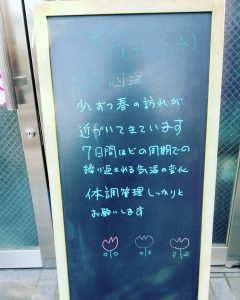 (火)
四温
少しずつ春の訪れが
近づいてきています
7日間ほどの周期での
繰り返される気温の変化
体調管理しっかりと
お願いします